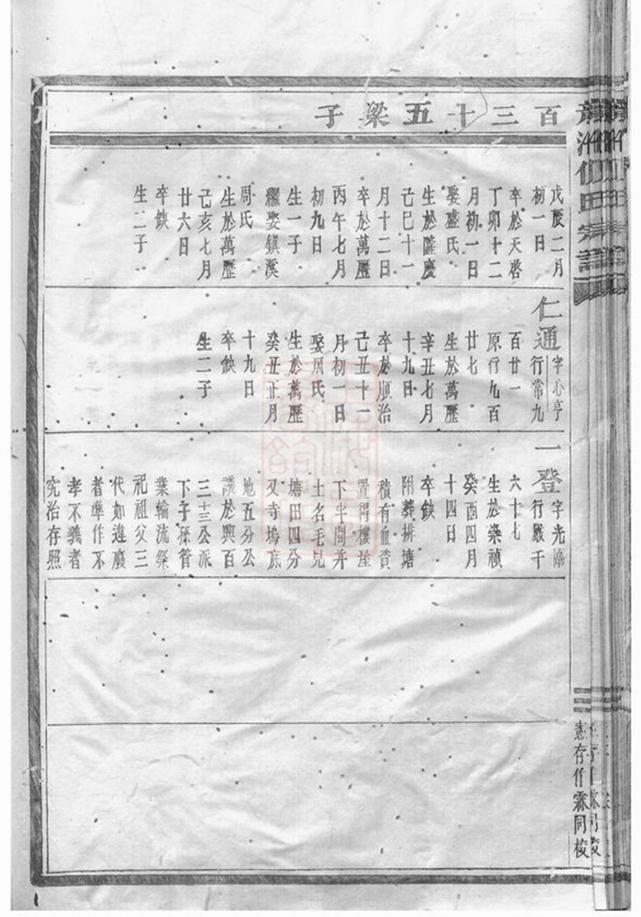 百三十五梁子
戊辰二月
初一日
卒於天啓
丁卯十二
月初一日
娶盛氏
生於隆慶
己巳十一
月十二日
卒於萬歷
丙午七月
初九日
生一子
繼娶鎮溪
周氏
生於萬歷
己亥七月
廿六日
卒缺
生二子
仁通字心亨
行常九
百廿一
原行九百
廿七
生於萬歷
辛丑七月
十九日
卒於順治
己丑十一
月初一日
娶周氏
生於萬歷
癸丑正月
十九日
卒缺
生二子
一登字光
行嚴千
六十七
生於崇禎
癸酉四月
十四日
卒缺
附葬排塘
積有血資
置得樓屋
下半間并
土名毛兒
塘田四分
又寺塢底
地五分公
議於興百
三十三公派
下子孫管
業輪流祭
祀祖父三
代如違廢
者準作不
孝不義者
究治存照
宗譜
憲存作霖同校